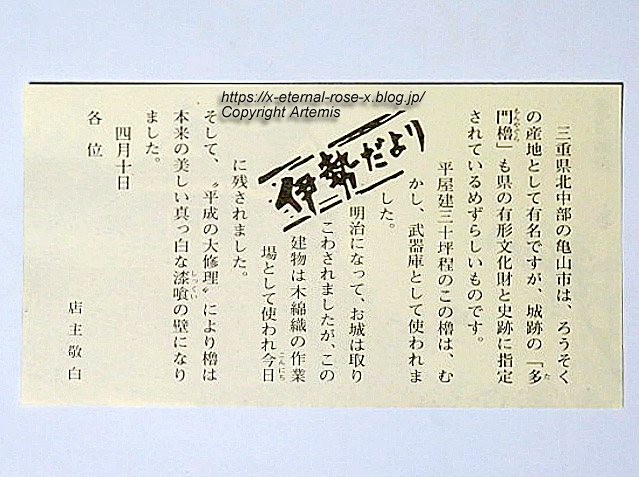 https://x-eternal-rose-x.blog.jp/
Copyright Artemis
伊勢だより
三重県北中部の亀山市は、ろうそく
の産地として有名ですが、城跡の「多
門櫓」も県の有形文化財と史跡に指定
されているめずらしいものです。
平屋建三十坪程のこの櫓は、む
かし、武器庫として使われま
した。
明治になって、お城は取り
こわされましたが、この
建物は木綿織の作業
場として使われ今日
に残されました。
そして、〝平成の大修理〟により櫓は
本来の美しい真っ白な漆喰の壁になり
ました。
四月十日
店主敬白
各位